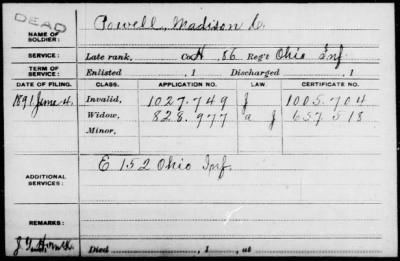 DEAD
NAME OF SOLDIER: Powell, Madison L.
SERVICE: Late rank, Co. H 86 Reg't Ohio Inf.
TERM OF SERVICE: Enlisted , 1 Discharged , 1
DATE OF FILING. CLASS. APPLICATION NO. LAW. CERTIFICATE NO.
1891 June 4. Invalid, 1027.749 J 1005.704
Widow, 828.977 a J 657518
Minor,
ADDITIONAL SERVICES: E 152 Ohio Inf.
REMARKS:
Died , 1 , at